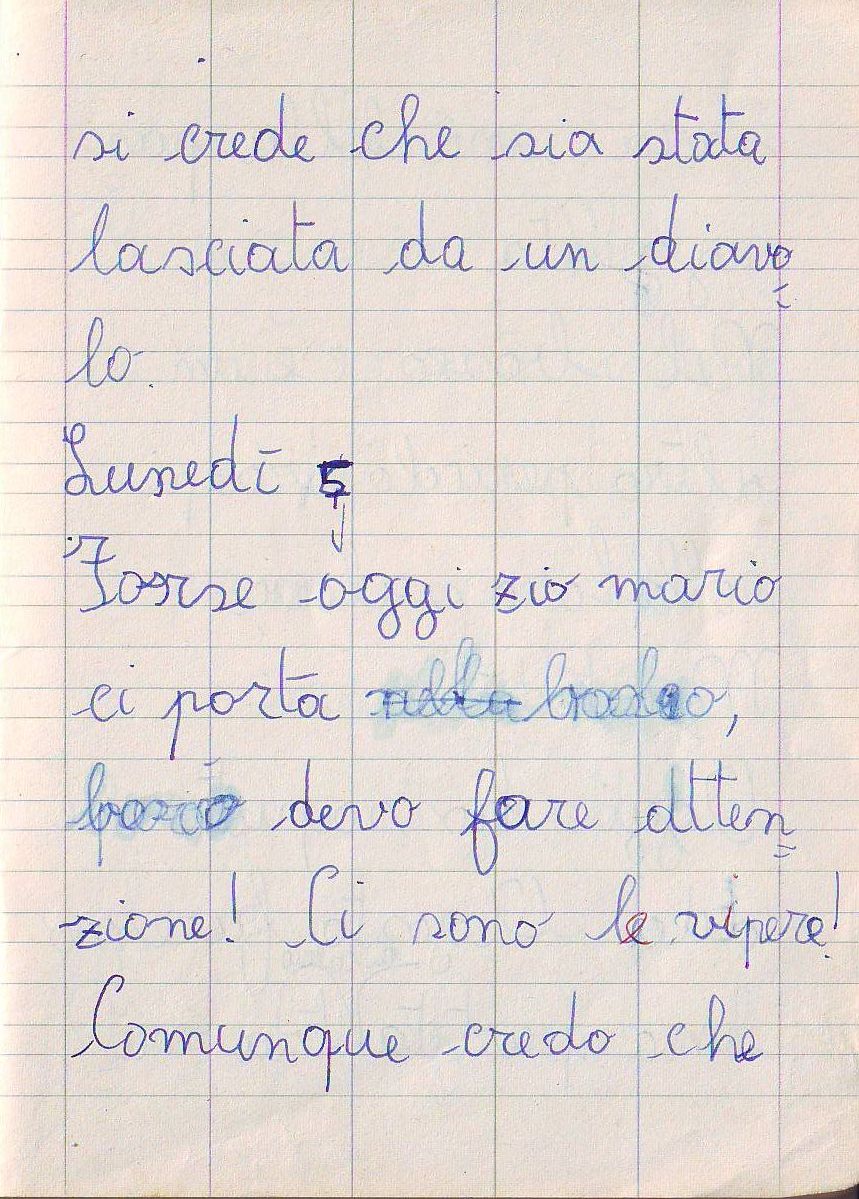 si crede che sia stata
lasciata da un diavo
lo.
Lunedī 5
Forse oggi zio mario
ci porta
però devo fare atten
zione! Ci sono le vipere!
Comunque credo che